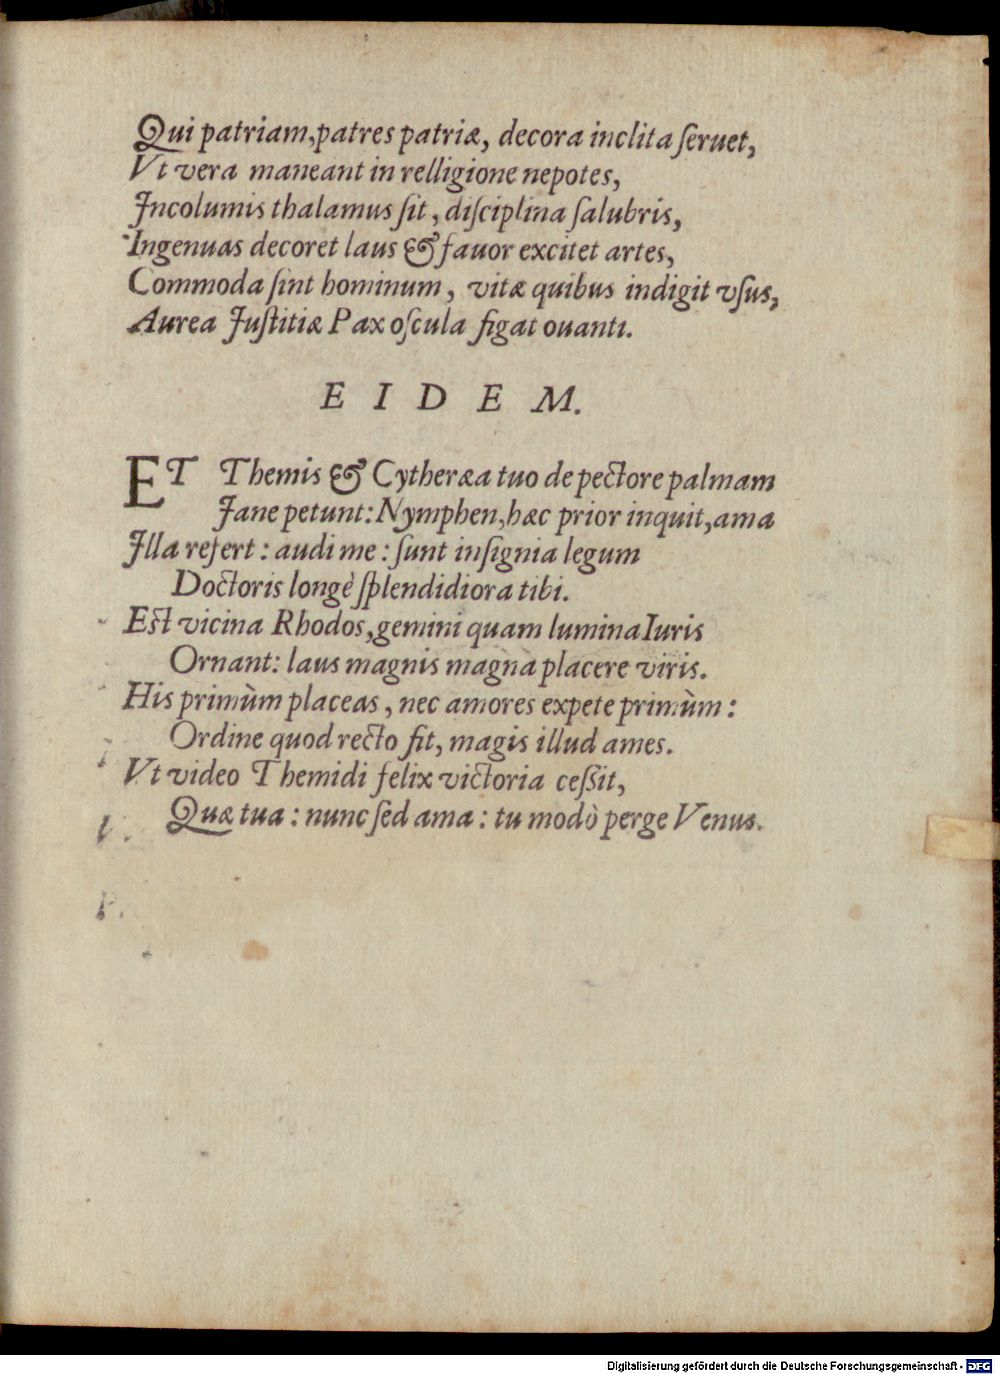 Qui patriam, patres patriæ, decora inclita ſeruet,
Vt vera maneant in relligione nepotes,
Incolumis thalamus ſit, diſciplina ſalubris,
Ingenuas decoret laus & fauor excitet artes,
Commoda ſint hominum, vitæ quibus indigit vſus,
Aurea Juſtitiæ Pax oſcula figat ouanti.
EIDEM.
ET Themis & Cytheræa tuo de pectore palmam
Jane petunt: Nymphen, hæc prior inquit, ama
Illa refert: audi me: ſunt inſignia legum
Doctoris longè ſplendidiora tibi.
Eſt vicina Rhodos, gemini quam lumina Iuris
Ornant: laus magnis magna placere viris.
His primùm placeas, nec amores expete primùm:
Ordine quod recto fit, magis illud ames.
Vt video Themidi felix victoria ceſſit,
Quæ tua: nunc ſed ama: tu modò perge Venus.
Digitalisierung gefördert durch die Deutsche Forschungsgemeinschaft - DFG